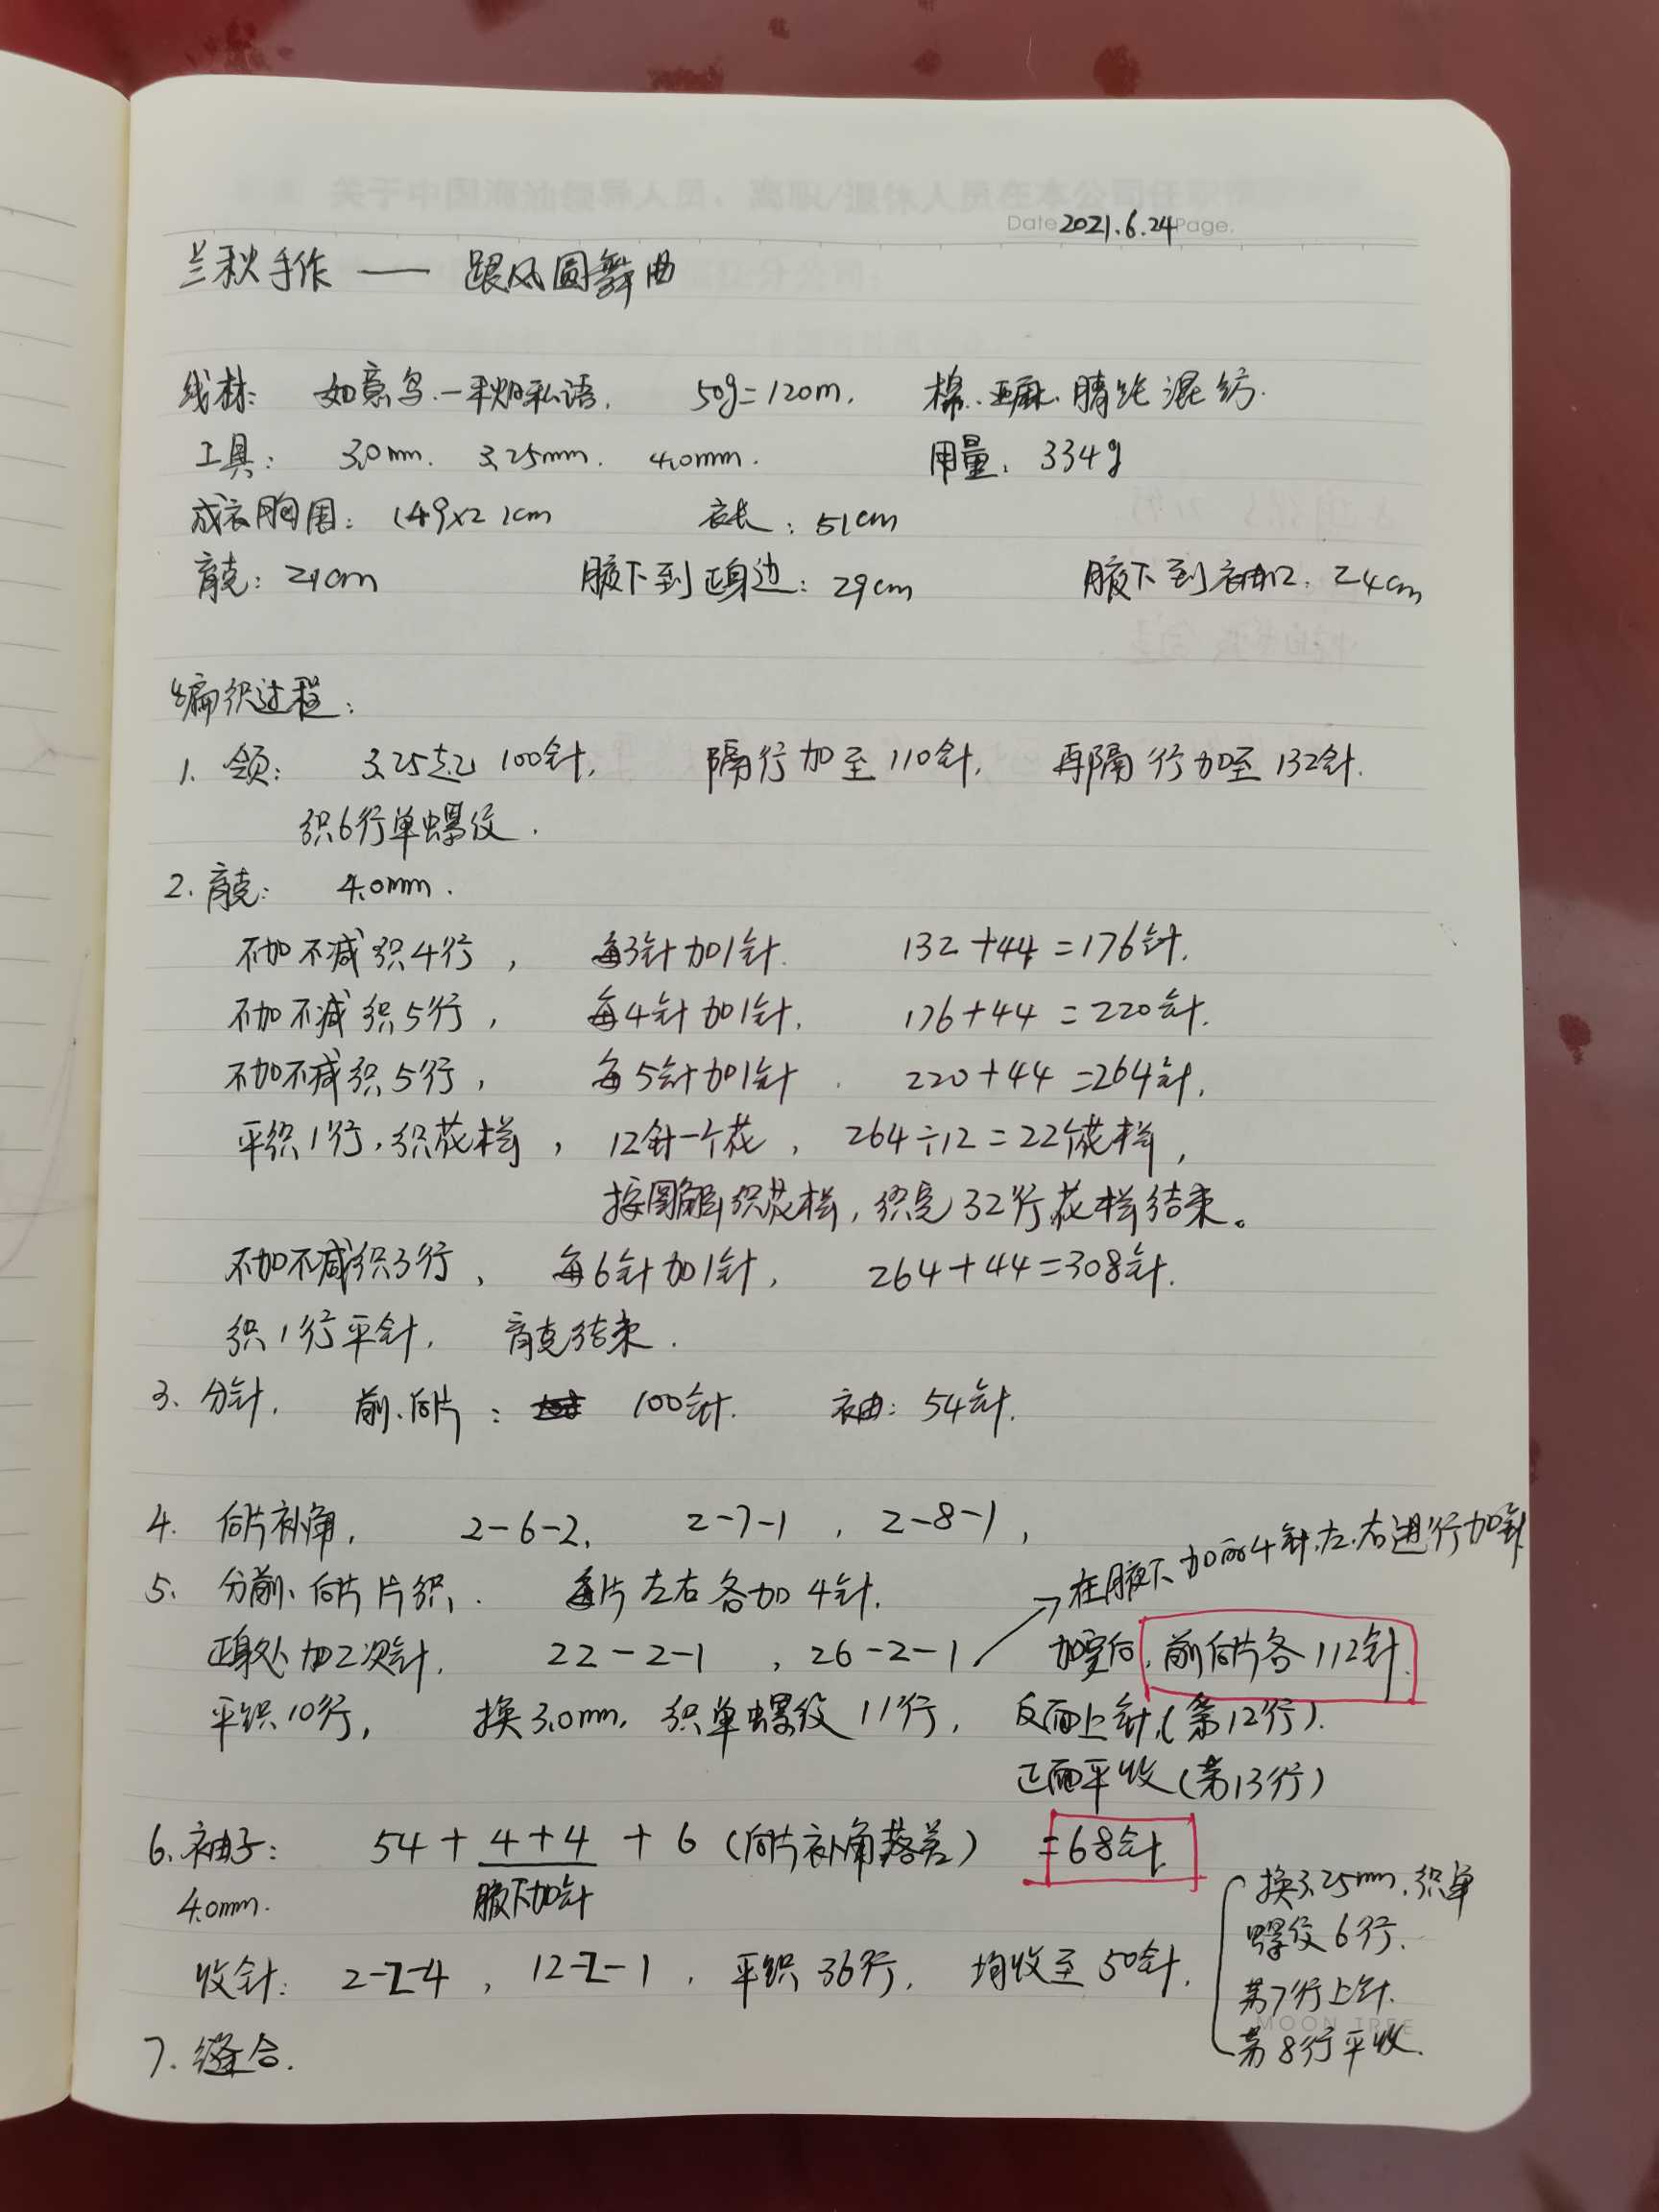 关于中国海油领导人员、离职/退休人员在本公司任职
Date 2021.6.24 Page.
兰秋手作 —— 踉风圆舞曲
线材: 如意鸟.一秋日私语. 50g=120m. 棉.亚麻.腈纶混纺.
工具: 3.0mm. 3.25mm. 4.0mm. 用量: 334g
成衣胸围: (49x2)cm 衣长: 51cm
育克: 21cm 腋下到正身边: 29cm 腋下到袖口: 24cm
编织过程:
1. 领: 3.25起 100针, 隔行加至110针, 再隔行加至132针.
织6行单螺纹.
2. 育克: 4.0mm.
不加不减织4行, 每3针加1针. 132+44=176针.
不加不减织5行, 每4针加1针. 176+44=220针.
不加不减织5行, 每5针加1针. 220+44=264针.
平织1行,织花样, 12针一个花, 264÷12=22个花样,
按图解织花样,织完32行花样结束。
不加不减织3行, 每6针加1针, 264+44=308针.
织1行平针, 育克结束.
3. 分针, 前.后片: 100针. 袖: 54针.
4. 后片补角, 2-6-2, 2-7-1, 2-8-1,
5. 分前、后片片织. 每片左右各加4针.
在腋下加的4针左.右进行加针
正身处加2次针, 22-2-1, 26-2-1 加完后,前后片各112针.
平织10行, 换3.0mm, 织单螺纹11行, 反面上针(第12行).
正面平收(第13行)
6. 袖子: 54+4+4+6(后片补角落差) =68针
4.0mm. 腋下加针
收针: 2-2-4, 12-2-1, 平织36行, 均收至50针,
换3.25mm.织单
螺纹6行.
第7行上针.
MOON TREE
第8行平收.
7. 缝合.